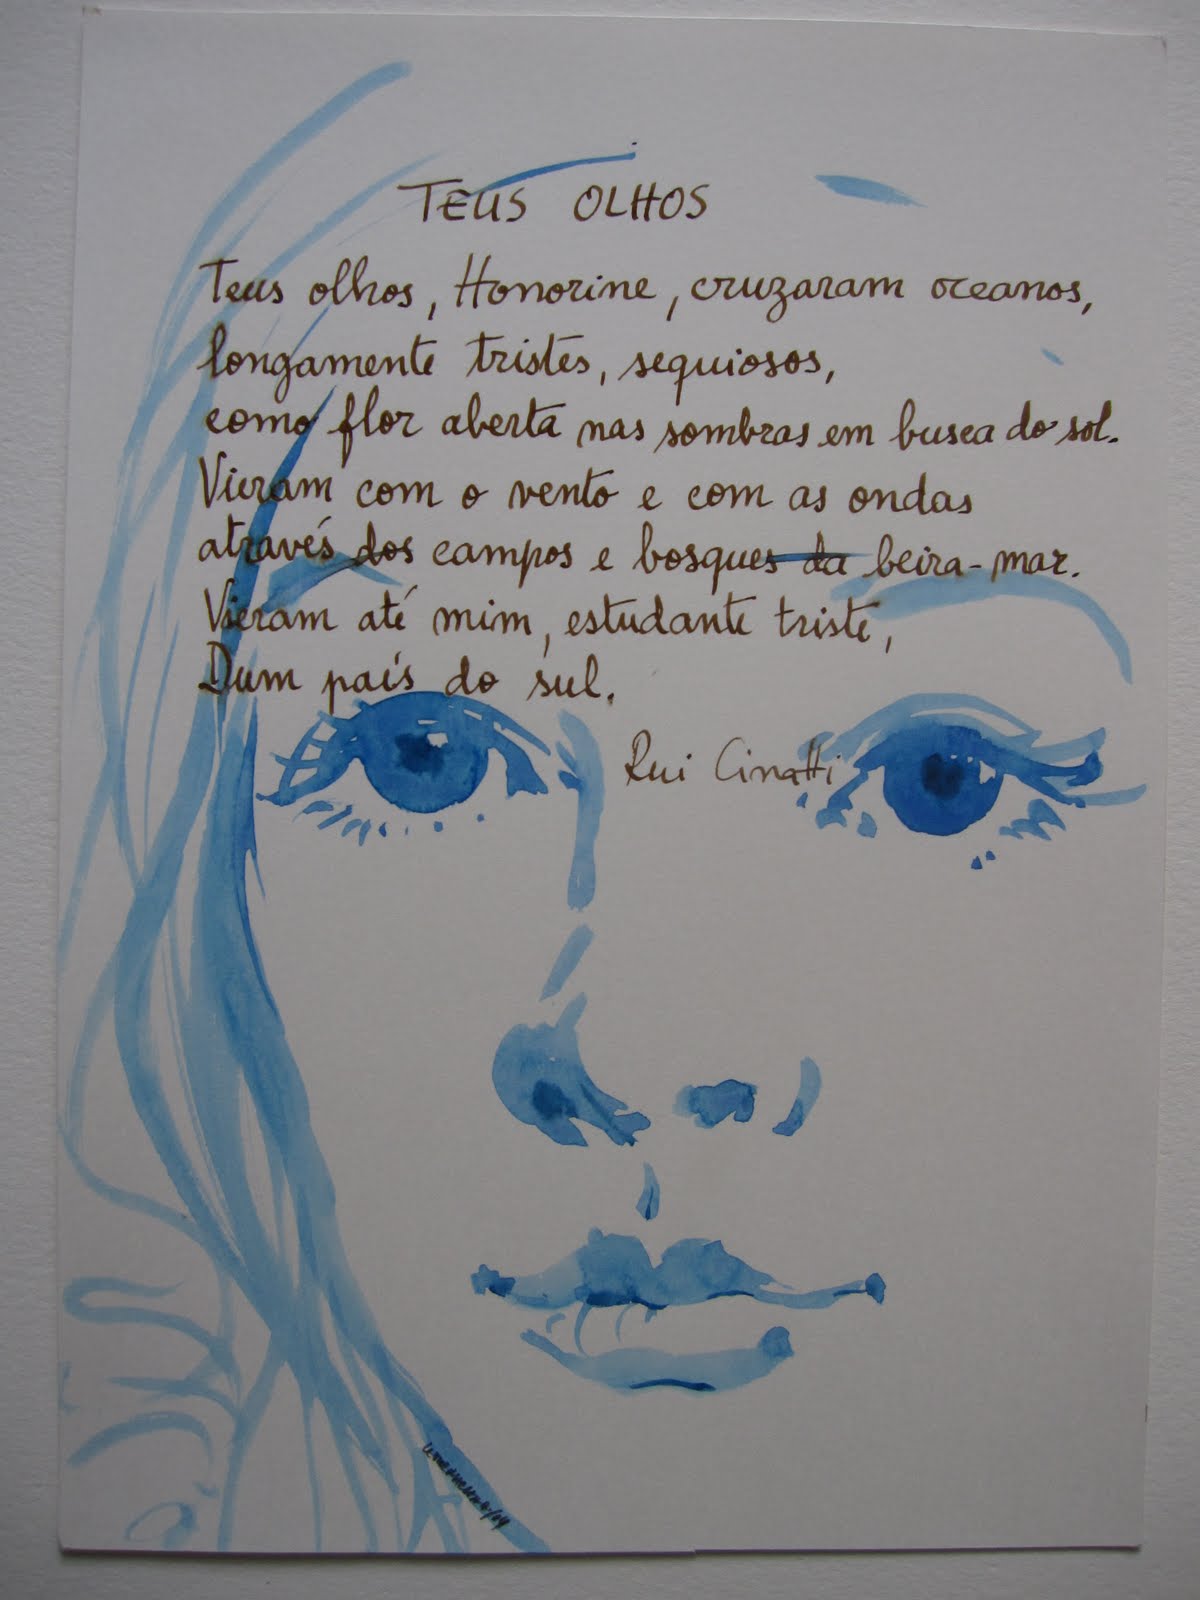 TEUS OLHOS
Teus olhos, Honorine, cruzaram oceanos,
longamente tristes, sequiosos,
como flor aberta nas sombras em busca do sol.
Vieram com o vento e com as ondas
através dos campos e bosques da beira-mar.
Vieram até mim, estudante triste,
Dum país do sul.
Rui Cinatti